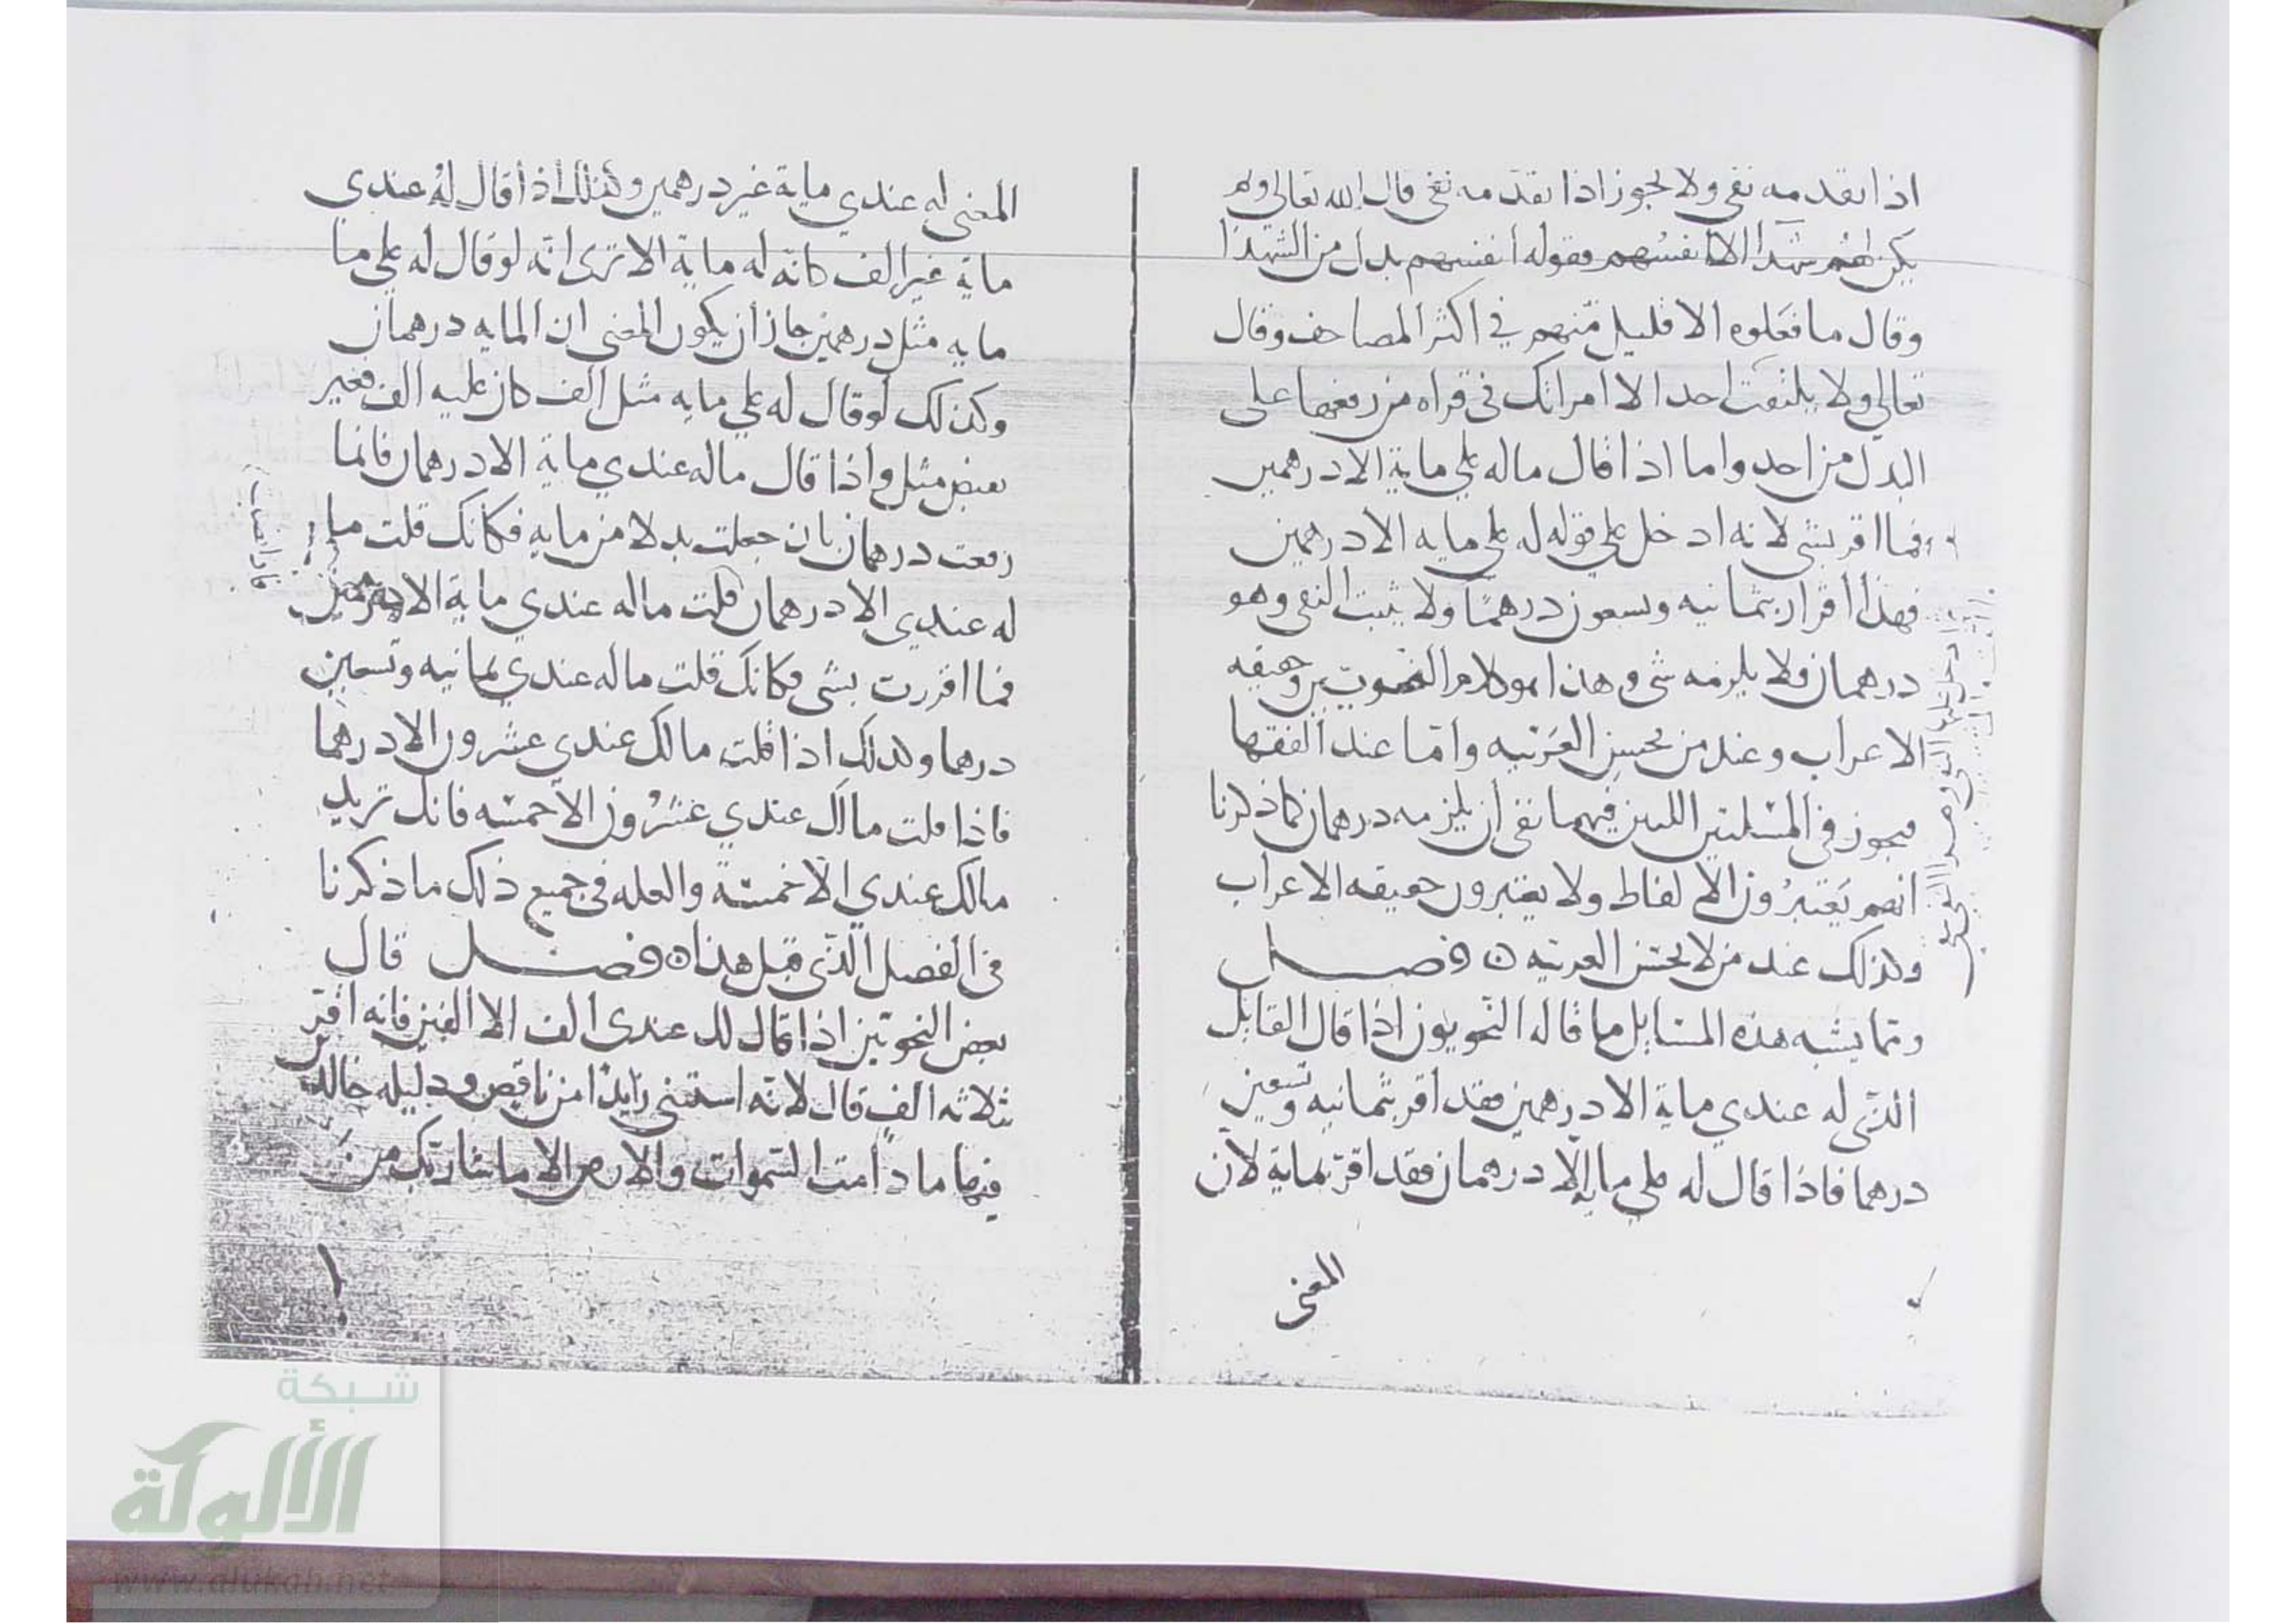 اذا تقدمه نفي ولا يجوز اذا تقدمه نفي قال الله تعالى ولم
يكن لهم شهدآ الا انفسهم فقوله انفسهم بدل من الشهدا
وقال ما فعلوه الا قليل منهم في اكثر المصاحف وقال
تعالى ولا يلتفت احد الا امراتك في قراه من رفعها على
البدل من احد واما اذا قال ماله علي ماية الا درهمين
فما اقر بشي لانه ادخل على قوله له علي مايه الا درهمين
فهذا اقرار بثمانيه وتسعون درهمًا ولا يثبت النفي وهو
درهمان فلا يلزمه شي وهذا هو كلام النحويين وحقيقه
الاعراب وعند من يحسن العربيه وامّا عند الفقها
فيجوز في المسلتين اللتين فيهما نفي أن يلزمه درهمان كما ذكرنا
انهم يَعتبرُون الالفاظ ولا يعتبرون حقيقه الاعراب
وكذلك عند من لا يحسن العربيه ه فصـل
ومما يشبه هذه المسايل ما قاله النحويون اذا قال القايل
الذي له عندي ماية الا درهمين فقد اقر بثمانيه وتسعين
درهما فاذا قال له علي مايه إلّا درهمان فقد اقرّ بماية لان
المعنى
المعنى له عندي ماية غير درهمين وكذلك اذا قال لهُ عندي
ماية غير الف كانّه له ماية الا ترى انّه لو قال له علي ما
مايه مثل درهمين جاز أن يكون المعنى ان المايه درهمان
وكذلك لو قال له علي مايه مثل الف كان عليه الف فغير
نقيض مثل واذا قال ماله عندي ماية الا درهمان فانما
رفعت درهمان بان جعلت بدلا من مايه فكانك قلت ما
له عندي الا درهمان قلت ماله عندي ماية الا درهمين
فما اقررت بشي فكانك قلت ماله عندي ثمانيه وتسعين
درهما وكذلك اذا قلت مالك عندي عشرون الا درهما
فاذا قلت مالك عندي عشرُون الا خمسه فانك تريد
مالك عندي الّا خمسة والعله في جميع ذلك ما ذكرنا
في الفصل الذي قبل هذا ه فصـل قال
بعض النحويّين اذا قال لك عندى الف الا الفين فانه اقرّ
بثلاثه الف قال لانّه استثنى زايدًا من ناقص ودليله خالدين
فيها ما دامت السّموات والارض الا ما شا ربّك من
فاذا قلت
شبكة
الألوكة
www.alukah.net